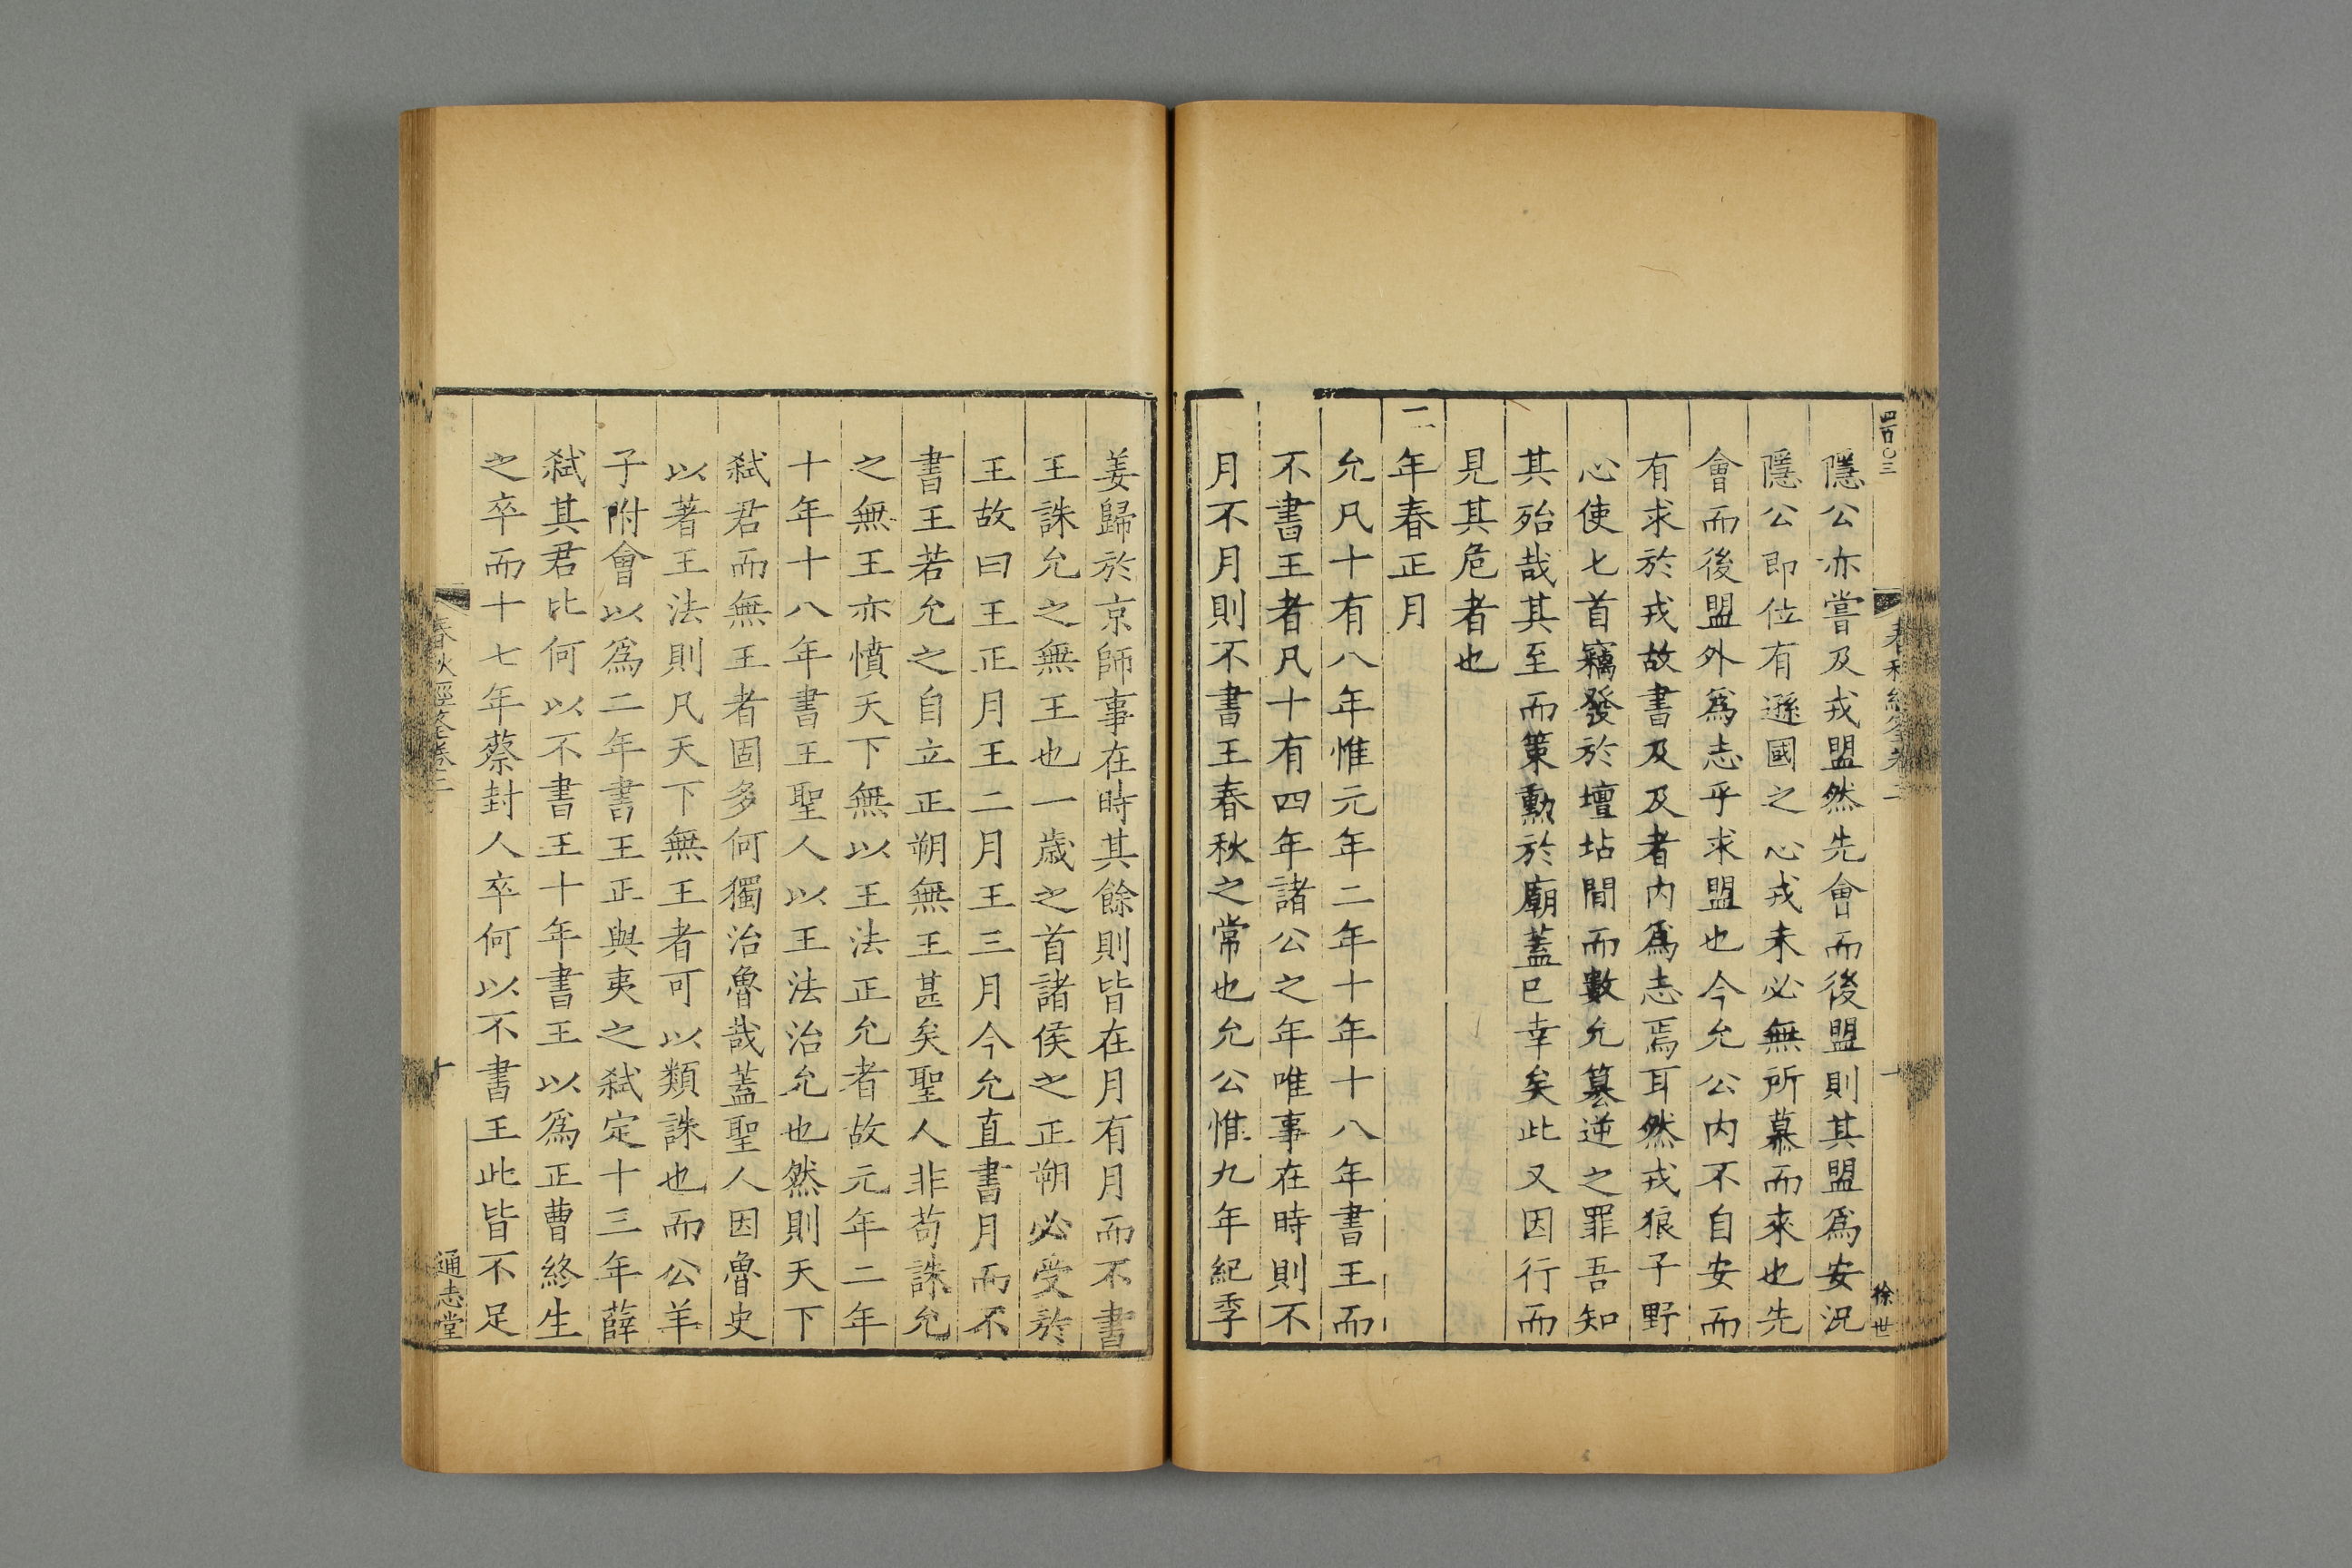 四百〇三
隱公亦嘗及戎盟然先會而後盟則其盟爲安況
隱公即位有遜國之心戎未必無所慕而來也先
會而後盟外爲志乎求盟也今允公内不自安而
有求於戎故書及及者内爲志焉耳然戎狼子野
心使七首竊發於壇坫間而數允簒逆之罪吾知
其殆哉其至而策勲於廟蓋已幸矣此又因行而
見其危者也
二年春正月
允凡十有八年惟元年二年十年十八年書王而
不書王者凡十有四年諸公之年唯事在時則不
月不月則不書王春秋之常也允公惟九年紀季
徐世
姜歸於京師事在時其餘則皆在月有月而不書
王誅允之無王也一歲之首諸侯之正朔必受於
王故曰王正月王二月王三月今允直書月而不
書王若允之自立正朔無王甚矣聖人非苟誅允
之無王亦憤天下無以王法正允者故元年二年
十年十八年書王聖人以王法治允也然則天下
弑君而無王者固多何獨治魯哉蓋聖人因魯史
以著王法則凡天下無王者可以類誅也而公羊
子附會以爲二年書王正與夷之弑定十三年薛
弑其君比何以不書王十年書王以爲正曹終生
之卒而十七年蔡封人卒何以不書王此皆不足
春秋經筌卷二
十
通志堂